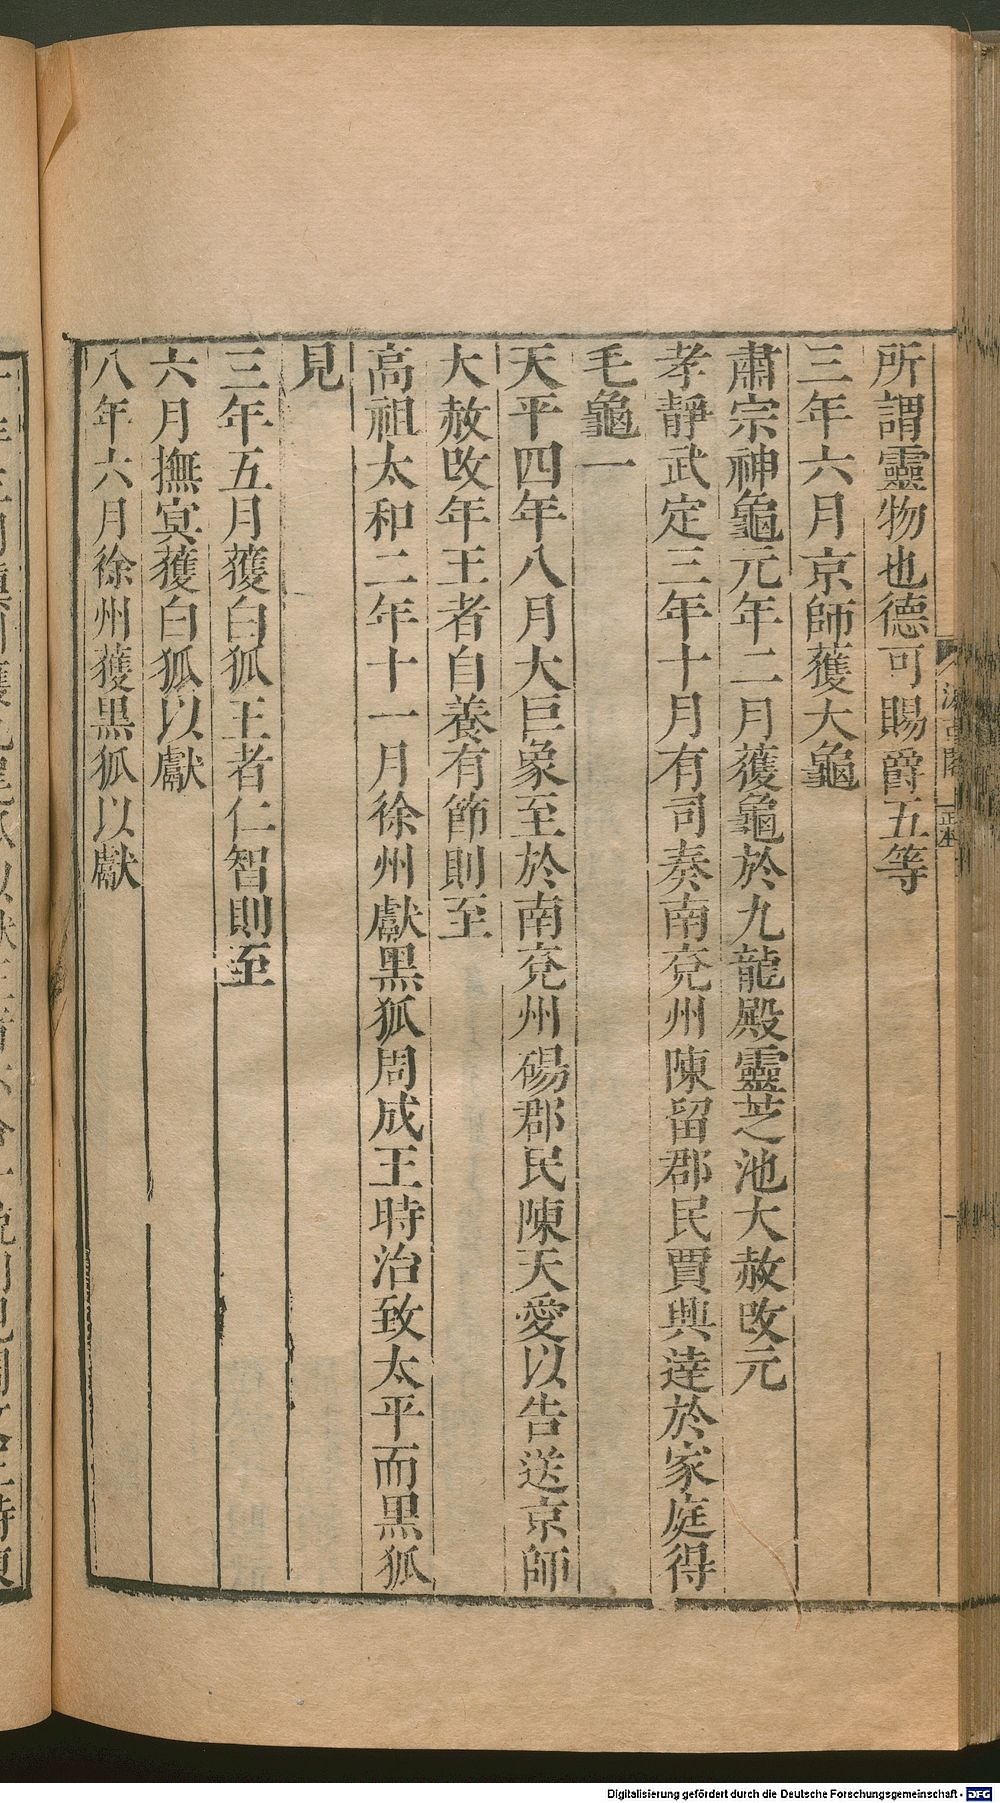 所謂靈物也德可賜爵五等
三年六月京師獲大龜
肅宗神龜元年二月獲龜於九龍殿靈芝池大赦改元
孝靜武定三年十月有司奏南兗州陳留郡民賈興達於家庭得
毛龜一
天平四年八月大巨象至於南兗州碭郡民陳天愛以告送京師
大赦改年王者自養有節則至
高祖太和二年十一月徐州獻黑狐周成王時治致太平而黑狐
見
三年五月獲白狐王者仁智則至
六月撫冥獲白狐以獻
八年六月徐州獲黑狐以獻
Digitalisierung gefördert durch die Deutsche Forschungsgemeinschaft - DFG